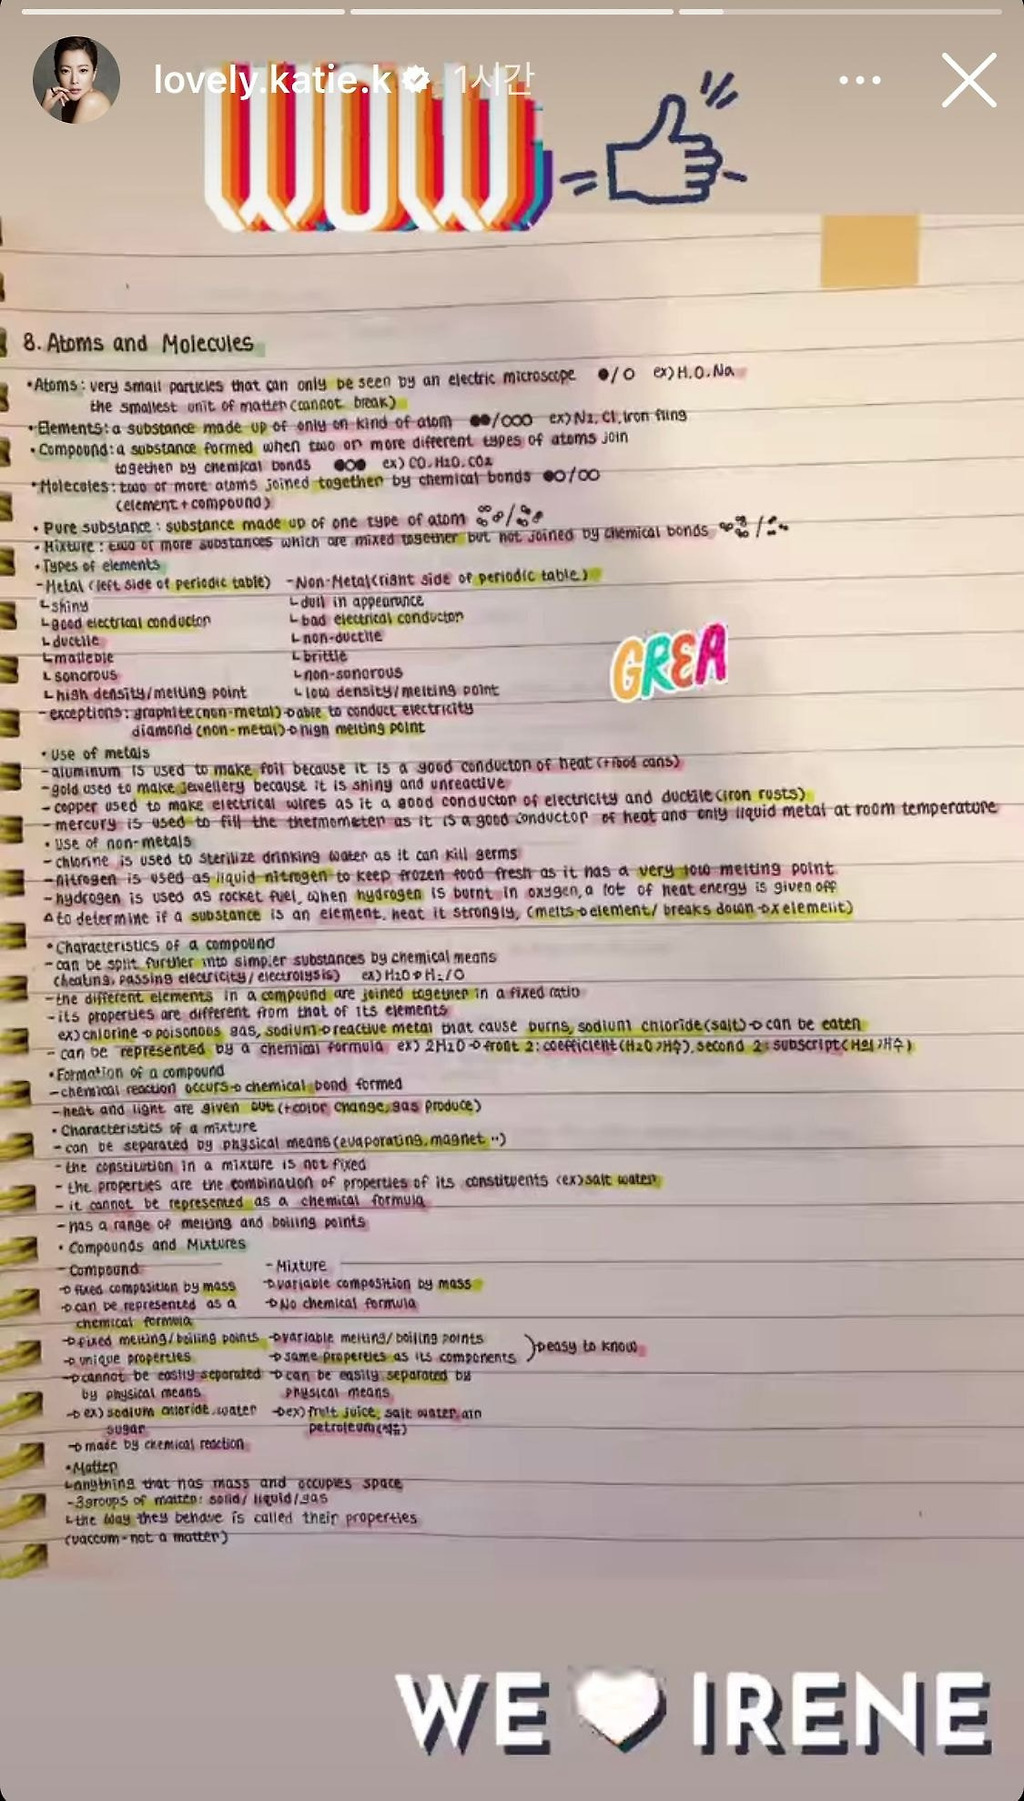 lovely.katie.k 1시간
WOW
8. Atoms and Molecules
•Atoms: very small particles that can only be seen by an electric microscope ●/○ ex) H.O.Na
the smallest unit of matter (cannot break)
•Elements: a substance made up of only on kind of atom ●●/○○○ ex) N2, Cl, iron filing
•Compound: a substance formed when two or more different types of atoms join
together by chemical bonds ●○● ex) CO. H2O. CO2
•Molecules: two or more atoms joined together by chemical bonds ●○/○○
(element+compound)
•Pure substance: substance made up of one type of atom
•Mixture: two or more substances which are mixed together but not joined by chemical bonds
•Types of elements
-Metal (left side of periodic table) -Non-Metal (right side of periodic table)
└shiny └dull in appearance
└good electrical conductor └bad electrical conductor
└ductile └non-ductile
└malleble └brittle
└sonorous └non-sonorous
└high density/melting point └low density/melting point
-exceptions: graphite (non-metal)→able to conduct electricity
diamond (non-metal)→high melting point
•Use of metals
-aluminum is used to make foil because it is a good conductor of heat (+food cans)
-gold used to make jewellery because it is shiny and unreactive
-copper used to make electrical wires as it a good conductor of electricity and ductile (iron rusts)
-mercury is used to fill the thermometer as it is a good conductor of heat and only liquid metal at room temperature
•Use of non-metals
-chlorine is used to sterilize drinking water as it can kill germs
-nitrogen is used as liquid nitrogen to keep frozen food fresh as it has a very low melting point
-hydrogen is used as rocket fuel, when hydrogen is burnt in oxygen, a lot of heat energy is given off
△to determine if a substance is an element, heat it strongly, (melts→element/ breaks down→x element)
•Characteristics of a compound
-can be split further into simpler substances by chemical means
(heating, passing electricity/electrolysis) ex) H2O→H2/O
-the different elements in a compound are joined together in a fixed ratio
-its properties are different from that of its elements
ex) chlorine→poisonous gas, sodium→reactive metal that cause burns, sodium chloride (salt)→can be eaten
-can be represented by a chemical formula ex) 2H2O→front 2: coefficient (H2O개수), second 2: subscript (H의 개수)
•Formation of a compound
-chemical reaction occurs→chemical bond formed
-heat and light are given out (+color change, gas produce)
•Characteristics of a mixture
-can be separated by physical means (evaporating, magnet ··)
-the constitution in a mixture is not fixed
-the properties are the combination of properties of its constituents (ex) salt water
-it cannot be represented as a chemical formula
-has a range of melting and boiling points
•Compounds and Mixtures
-Compound -Mixture
→fixed composition by mass →variable composition by mass
→can be represented as a →No chemical formula
chemical formula
→fixed melting/boiling points →variable melting/boiling points
→unique properties →same properties as its components )→easy to know
→cannot be easily separated →can be easily separated by
by physical means physical means
→ex) sodium chloride, water →ex) fruit juice, salt water, air
sugar petroleum (석유)
→made by chemical reaction
•Matter
└anything that has mass and occupies space
-3groups of matter: solid/liquid/gas
└the way they behave is called their properties
(vaccum-not a matter)
GREA
WE IRENE